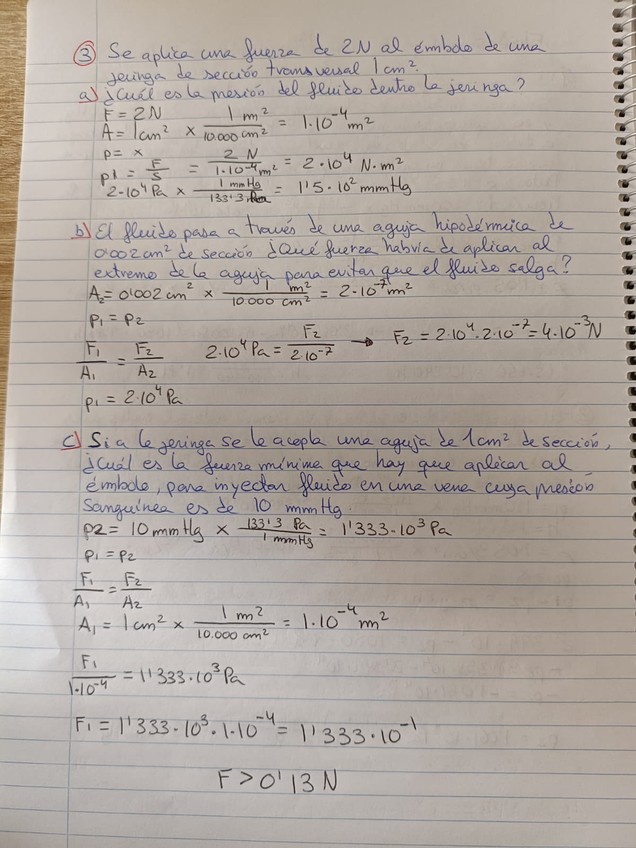 3 Se aplica una fuerza de 2N al émbolo de una
jeringa de sección transversal 1 cm².
a) ¿Cuál es la presión del fluido dentro la jeringa?
F = 2N
A = 1cm² × 1 m² / 10.000 cm² = 1·10⁻⁴ m²
p = x
p1 = F/S = 2 N / 1·10⁻⁴ m² = 2·10⁴ N·m²
2·10⁴ Pa × 1 mmHg / 133'3 Pa = 1'5·10² mmHg
b) El fluido pasa a través de una aguja hipodérmica de
0'002 cm² de sección ¿Qué fuerza habría de aplicar al
extremo de la aguja para evitar que el fluido salga?
A₂ = 0'002 cm² × 1 m² / 10.000 cm² = 2·10⁻⁷ m²
p₁ = p₂
F₁/A₁ = F₂/A₂ 2·10⁴ Pa = F₂ / 2·10⁻⁷ → F₂ = 2·10⁴·2·10⁻⁷ = 4·10⁻³ N
p₁ = 2·10⁴ Pa
c) Si a la jeringa se le acopla una aguja de 1 cm² de sección,
¿Cuál es la fuerza mínima que hay que aplicar al
émbolo, para inyectar fluido en una vena cuya presión
sanguínea es de 10 mmHg.
p2 = 10 mmHg × 133'3 Pa / 1 mmHg = 1'333·10³ Pa
p₁ = p₂
F₁/A₁ = F₂/A₂
A₁ = 1 cm² × 1 m² / 10.000 cm² = 1·10⁻⁴ m²
F₁ / 1·10⁻⁴ = 1'333·10³ Pa
F₁ = 1'333·10³·1·10⁻⁴ = 1'333·10⁻¹
F > 0'13 N